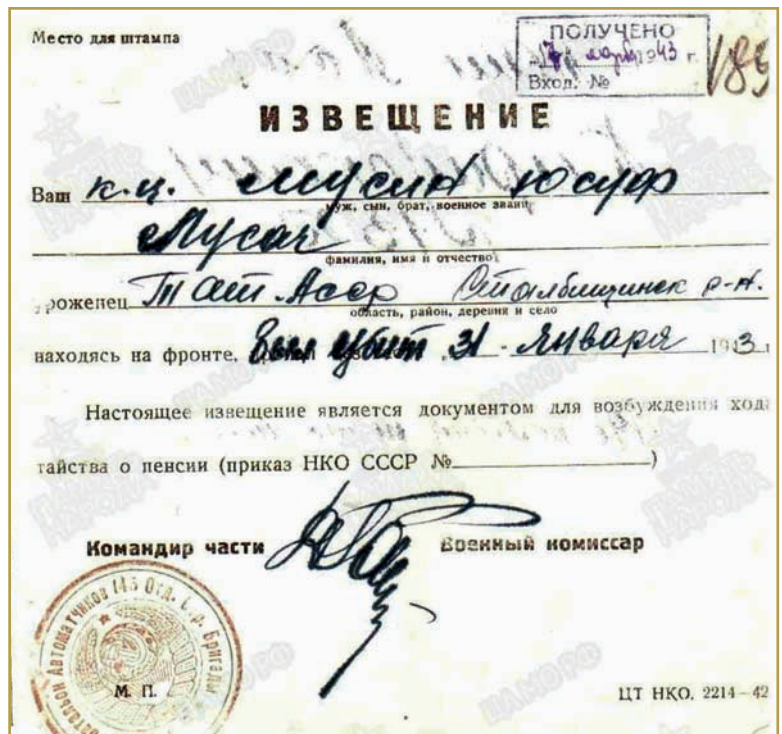 Место для штампа
ПОЛУЧЕНО
1943 г.
Вход. №
189
ИЗВЕЩЕНИЕ
Ваш к-ц. Мусин Юсуф
муж, сын, брат, военное звание
Мусач
фамилия, имя и отчество
уроженец Тат-Асср р-н.
область, район, деревня и село
находясь на фронте, был убит 31 - января 1943 г
Настоящее извещение является документом для возбуждения хода
тайства о пенсии (приказ НКО СССР № )
Командир части Военный комиссар
Батальон Автоматчиков 143 Отд. С. р. Бригады
М. П.
ЦТ НКО. 2214—42
ПАМЯТЬ НАРОДА
ЦАМО РФ